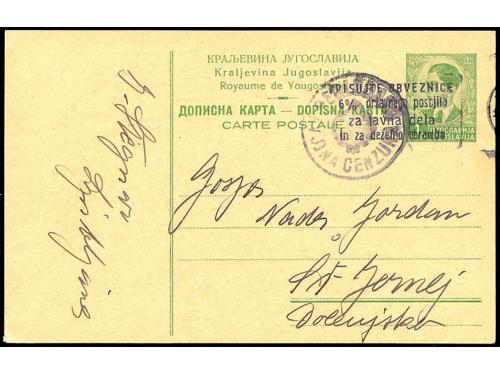 КРАЉЕВИНА ЈУГОСЛАВИЈА
Kraljevina Jugoslavija
Royaume de Yougos
ДОПИСНА КАРТА — DOPISNA KARTA
CARTE POSTALE
VPISUJTE OBVEZNICE
6% državnega posojila
za javna dela
in za deželno obrambo
CENZUR
Gospa
Nada Jordan
Št Jernej
Dolenjsko